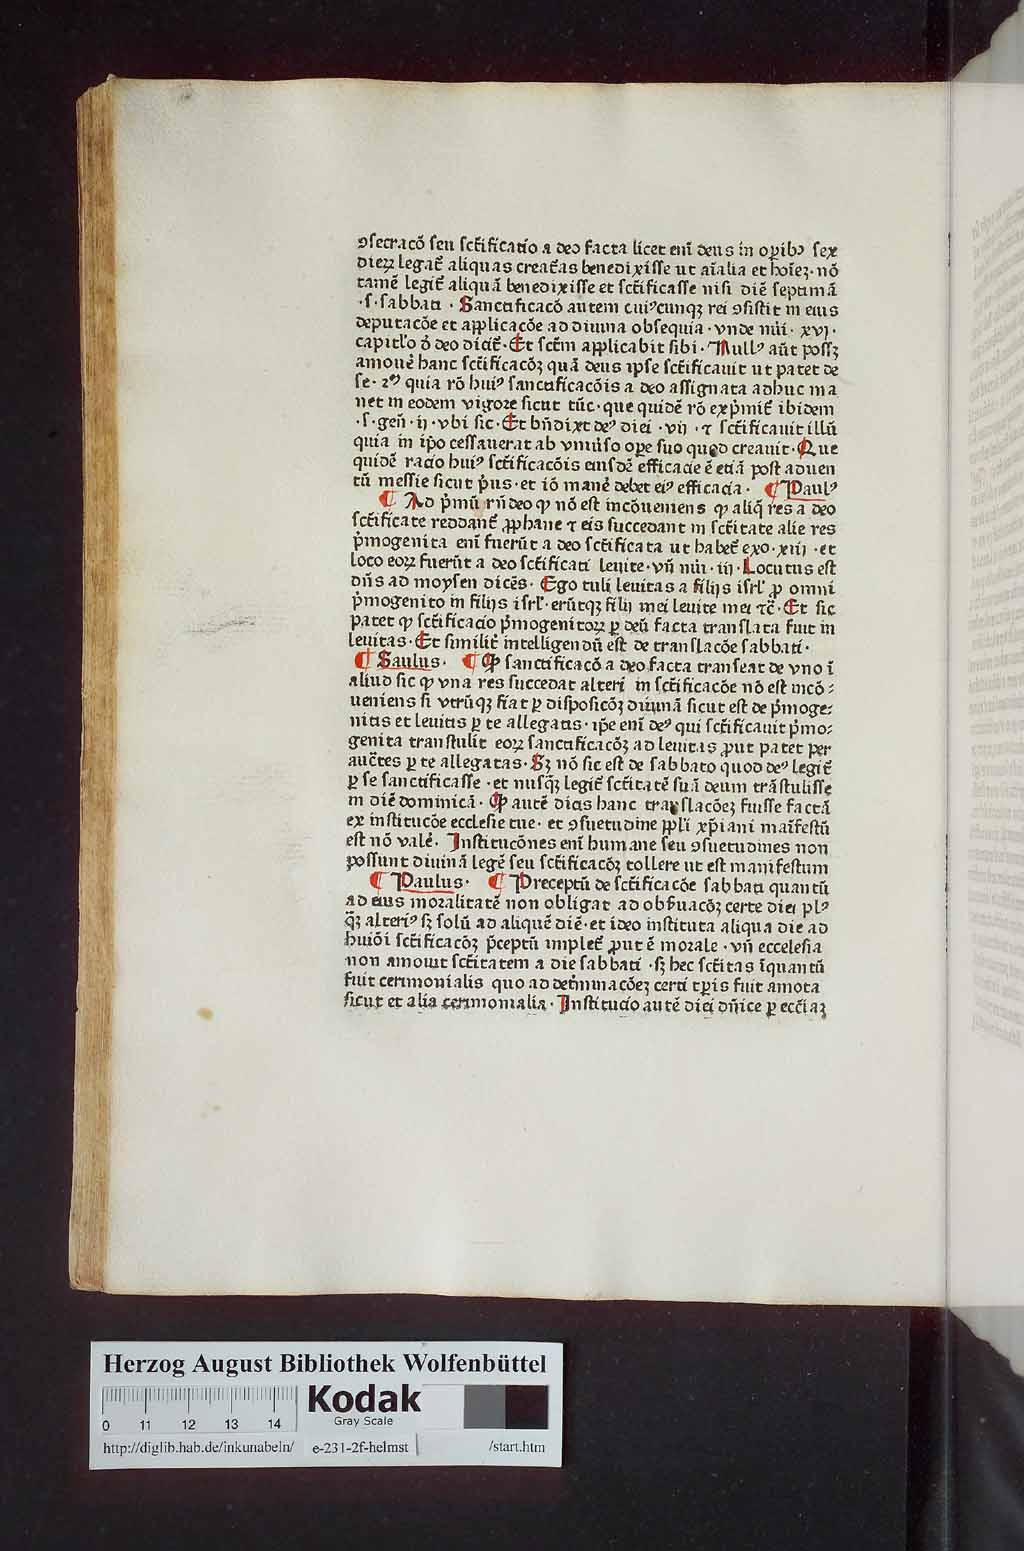 ꝯsecracõ seu sct̃ificatio a deo facta licet eni᷃ deus in oꝑibꝰ sex
dieꝝ legat᷑ aliquas creat᷑as benedixisse ut ai᷃alia et hoi᷃eꝫ · nõ
tamẽ legit᷑ aliquã benedixisse et sct̃ificasse nisi diẽ septimã
·s· sabbati · Sanctificacõ autem cuiꝰcunqꝫ rei ꝯsistit in eius
deputacõe et applicacõe ad diuina obsequia · vnde nũi · xvj ·
capitl'o ð deo dicit᷑ · Et sct̃m applicabit sibi · Nullꝰ aũt possꝫ
amoue᷑ hanc sct̃ificacõꝫ quã deus ipse sct̃ificauit ut patet de
se · 2ꝰ quia rõ huiꝰ sanctificacõis a deo assignata adhuc ma
net in eodem vigore sicut tũc · que quidẽ rõ exp̃mit᷑ ibidem
·s· geñ · ij · vbi sic · Et bñdixt deꝰ diei · vij · ⁊ sct̃ificauit illũ
quia in ip̃o cessauerat ab vniu᷑so oꝑe suo quod creauit · Que
quidẽ racio huiꝰ sct̃ificacõis eiusdẽ efficacie ẽ etiã post aduen
tũ messie sicut p̃us · et iõ mane᷑ debet eiꝰ efficacia · ¶ Paulꝰ
¶ Ad p̃mũ rñdeo ꝙ nõ est incõueniens ꝙ aliq̃ res a deo
sct̃ificate reddant᷑ ꝓphane ⁊ eis succedant in sct̃itate alie res
p̃mogenita eni᷃ fuerũt a deo sct̃ificata ut habet᷑ exo · xiij · et
loco eoꝝ fuerũt a deo sct̃ificati leuite · vñ nũi · iij · Locutus est
dñs ad moysen dicẽs · Ego tuli leuitas a filijs isrl' ꝓ omni
p̃mogenito in filijs isrl' · erũtqꝫ filij mei leuite mei ⁊c̃ · Et sic
patet ꝙ sct̃ificacio p̃mogenitoꝝ ꝑ deũ facta translata fuit in
leuitas · Et similit᷑ intelligendũ est de translacõe sabbati ·
¶ Saulus · ¶ Ꝙ sanctificacõ a deo facta transeat de vno ĩ
aliud sic ꝙ vna res succedat alteri in sct̃ificacõe nõ est incõ⸗
ueniens si vtrũqꝫ fiat ꝑ disposicõꝫ diuinã sicut est de p̃moge⸗
nitis et leuitis ꝑ te allegatis · ip̃e eni᷃ deꝰ qui sct̃ificauit p̃mo⸗
genita transtulit eoꝝ sanctificacõꝫ ad leuitas ꝓut patet per
auct̃es ꝑ te allegatas · Sꝫ nõ sic est de sabbato quod deꝰ legit᷑
ꝑ se sanctificasse · et nusqꝫ̃ legit᷑ sct̃itatẽ suã deum trãstulisse
in diẽ dominicã · Ꝙ autẽ dicis hanc translacõeꝫ fuisse factã
ex institucõe ecclesie tue · et ꝯsuetudine ppl'i xp̃iani mai᷃festũ
est nõ vale᷑ · Institucõnes eni᷃ humane seu ꝯsuetudines non
possunt diuinã legẽ seu sct̃ificacõꝫ tollere ut est manifestum
¶ Paulus · ¶ Preceptũ de sct̃ificacõe sabbati quantũ
ad eius moralitatẽ non obligat ad obẜuacõꝫ certe diei plꝰ
qꝫ̃ alteriꝰ sꝫ solũ ad aliquẽ diẽ · et ideo instituta aliqua die ad
huiõi sct̃ificacõꝫ p̃ceptũ implet᷑ ꝓut ẽ morale · vñ eccelesia
non amouit sct̃itatem a die sabbati · sꝫ hec sct̃itas ĩquantũ
fuit cerimonialis quo ad det᷑minacõeꝫ certi tꝑis fuit amota
sicut et alia cerimonialia · Institucio autẽ diei dñice ꝑ ecc̃iaꝫ
Herzog August Bibliothek Wolfenbüttel
0 11 12 13 14
Kodak
Gray Scale
http://diglib.hab.de/inkunabeln/ e-231-2f-helmst /start.htm